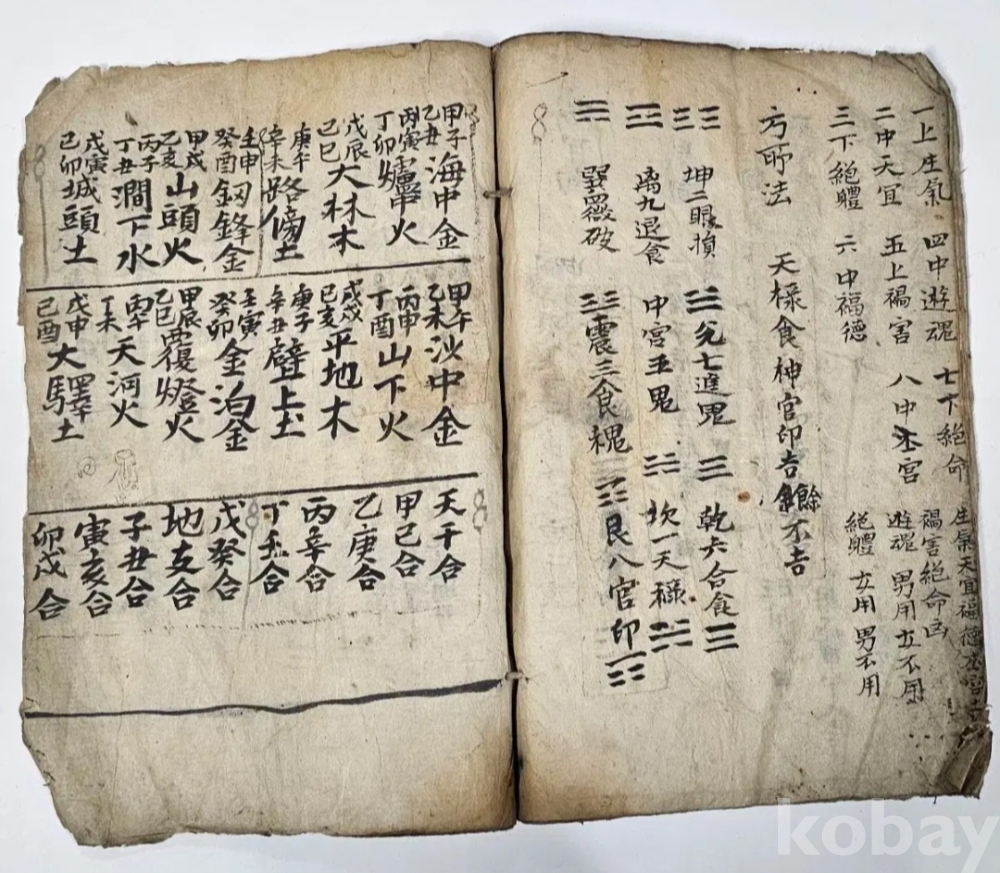 一上生氣 四中遊魂 七下絶命
二中天宜 五上禍害 八中本宮
三下絶體 六中福德
生氣天宜福德本宮吉
禍害絶命凶
遊魂 男用女不用
絶體 女用男不用
方所法 天祿食神官印吉餘不吉
☷ 坤二眼損 ☱ 兌七進鬼 ☰ 乾六合食
☲ 離九退食 中宮五鬼 ☵ 坎一天祿
☴ 巽四徵破 ☳ 震三食神 ☶ 艮八官印
甲子乙丑海中金
丙寅丁卯爐中火
戊辰己巳大林木
庚午辛未路傍土
壬申癸酉釰鋒金
甲戌乙亥山頭火
丙子丁丑澗下水
戊寅己卯城頭土
甲午乙未沙中金
丙申丁酉山下火
戊戌己亥平地木
庚子辛丑壁上土
壬寅癸卯金泊金
甲辰乙巳覆燈火
丙午丁未天河火
戊申己酉大驛土
天干合
甲己合
乙庚合
丙辛合
丁壬合
戊癸合
地支合
子丑合
寅亥合
卯戌合
kobay